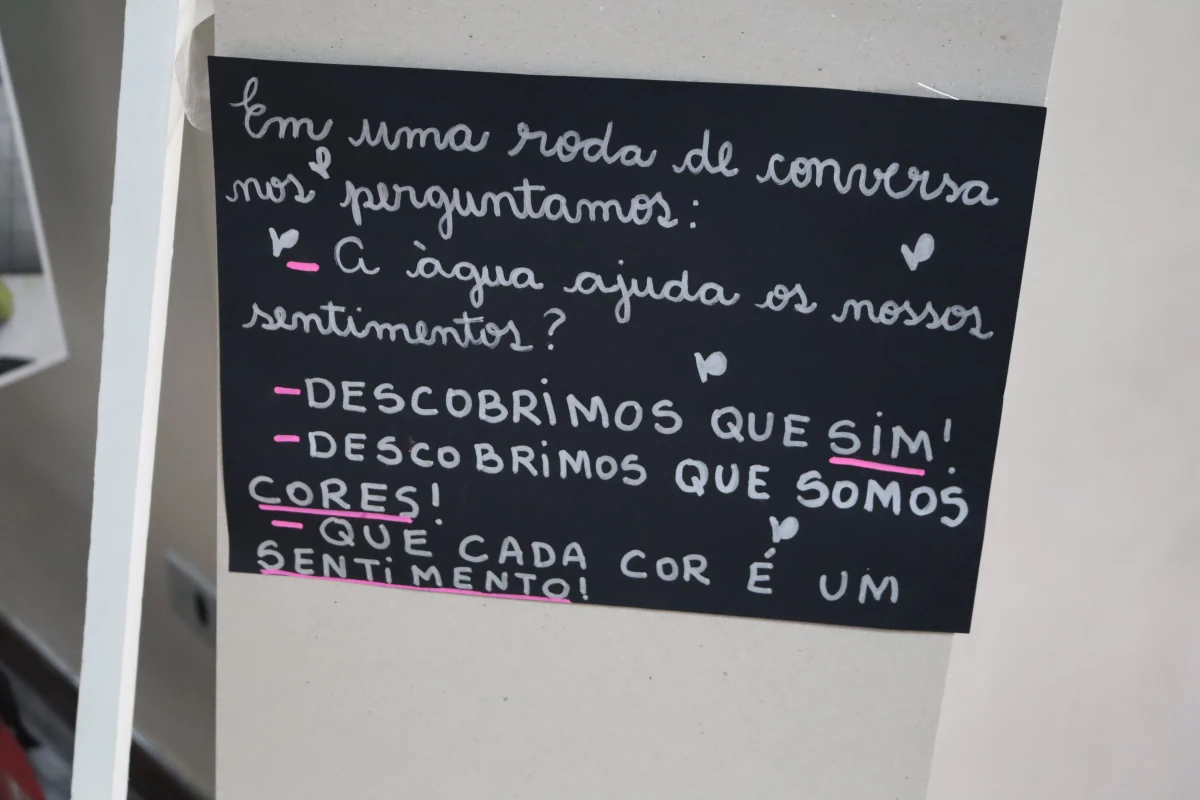 Em uma roda de conversa
nos perguntamos:
- A àgua ajuda os nossos
sentimentos?
-DESCOBRIMOS QUE SIM!
-DESCOBRIMOS QUE SOMOS
CORES!
- QUE CADA COR É UM
SENTIMENTO!